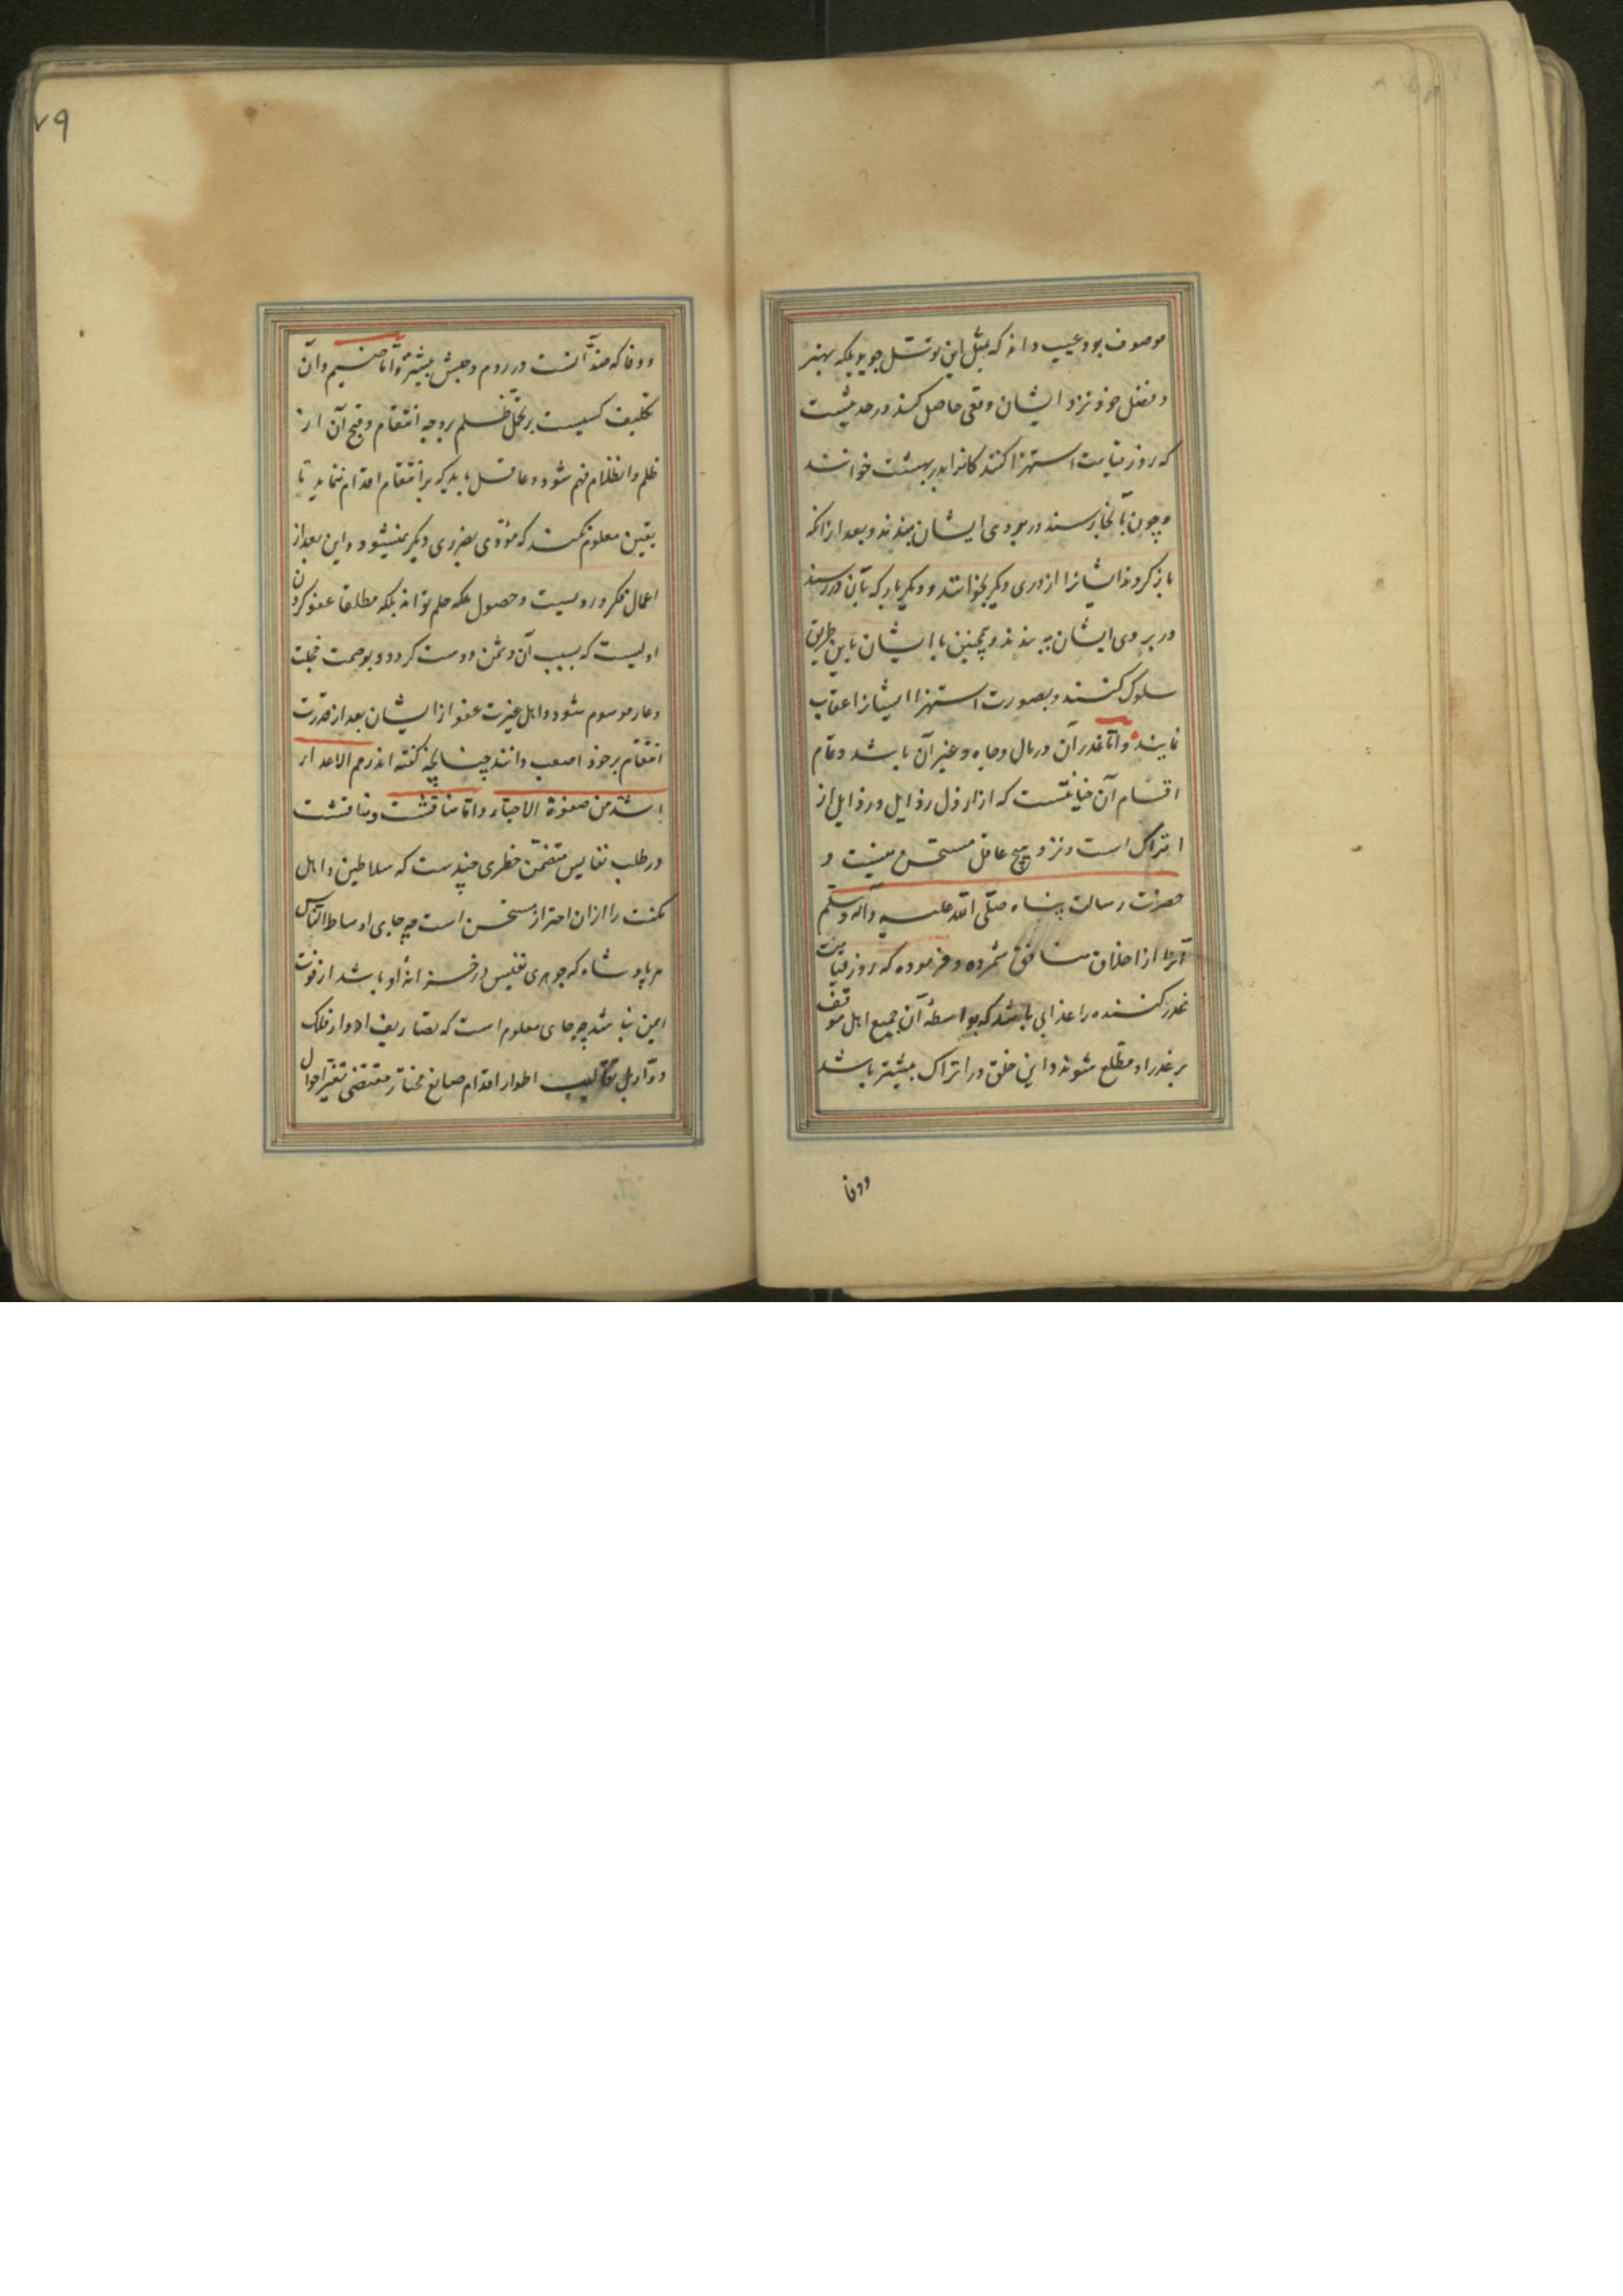 موصوف بود عیب داند که بمثل این توسّل جوید بلکه بهنر
و فضل خود نزد ایشان وقعی حاصل کند در حدیثست
که روز قیامت استهزا کنندکانرا بدر بهشت خوانند
و چون بآنجا رسند در بروی ایشان ببندند و بعد از انکه
باز کردند ایشانرا از دری دیکر بخوانند و دیکر بار که بآن در رسند
در بروی ایشان به بندند و همچنین با ایشان باین طریق
سلوک کنند و بصورت استهزا ایشانرا عقاب
نمایند و امّا غدر آن در مال و جاه و غیر آن باشد و تمام
اقسام آن خیانتست که از ارذل رذایل و رذایل از
اتراک است و نزد هیچ عاقل مستحسن نیست و
حضرت رسالت پناه صلّی اللّه علیه و آله و سلّم
آنرا از اخلاق منافق شمرده و فرموده که روز قیامت
غدر کننده را عذابی باشد که بواسطهٔ آن جمیع اهل موقف
بر غدر او مطّلع شوند و این خلق در اتراک بیشتر باشد
و وفا
و وفا که ضدّ آنست در روم و حبش بیشتر و امّا ضیم و آن
تکلیف کسیست بر تحمّل ظلم بر وجه انتقام و قبح آن از
ظلم و انظلام فهم شود و عاقل باید که بر انتقام اقدام ننماید تا
بیقین معلوم نکند که مؤدّی بضرری دیکر نمیشود و این بعد از
اعمال فکر و رویست و حصول ملکه حلم تواند بلکه مطلقا عفو کردن
اولیست که بسبب آن دشمن دوست کردد و بوصمت خجلت
و عار موسوم شود و اهل غیرت عفو از ایشان بعد از قدرت
انتقام بر خود اصعب دانند چنانچه کفته اند رحم الاعداء
اشدّ من ضغوة الاحبّاء و امّا مناقشت و منافشت
در طلب نفایس متضمّن خطری چندست که سلاطین و اهل
مکنت را ازان احتراز مستحسن است چه جای اوساط النّاس
هر پادشاه که جوهری نفیس در خزانهٔ او باشد از فوت
ایمن نباشد چه جای معلوم است که تصاریف ادوار فلک
دوّار بل تقالیب اطوار اقدام صانع مختار مقتضی تغیّر احوال